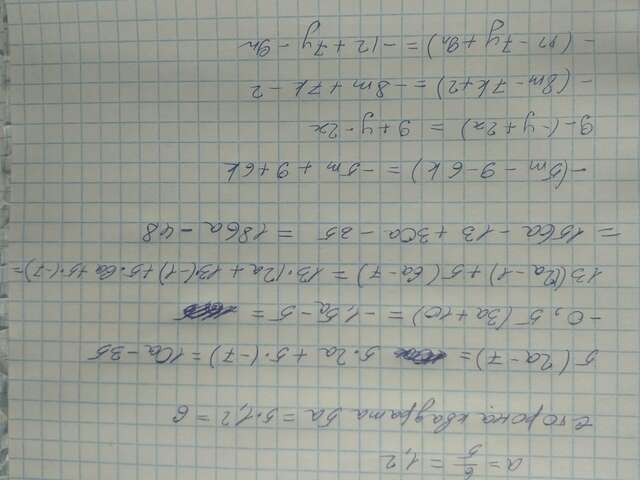 a = 6/5 = 1,2
сторона квадрата 5a = 5·1,2 = 6
5(2a-7) = 5·2a + 5·(-7) = 10a - 35
-0,5(3a+10) = -1,5a - 5 =
13(2a-1)+5(6a-7) = 13·12a + 13·(-1)+5·6a+5·(-7)=
= 156a - 13 + 30a - 35 = 186a - 48
-(5m - 9 - 6k) = -5m + 9 + 6k
9-(-y+2x) = 9 + y - 2x
-(8m - 7k+2) = -8m + 7k - 2
-(12 - 7y + 9n) = -12 + 7y - 9n